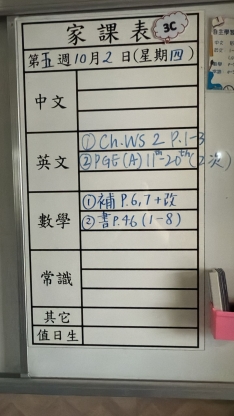 家課表 3C
第五週10月2日(星期四)
中文
英文
① Ch.WS 2 P.1-3
② PGE(A) 11th-20th (2次)
數學
① 補 P.6,7+改
② 書 P.46 (1-8)
常識
其它
值日生